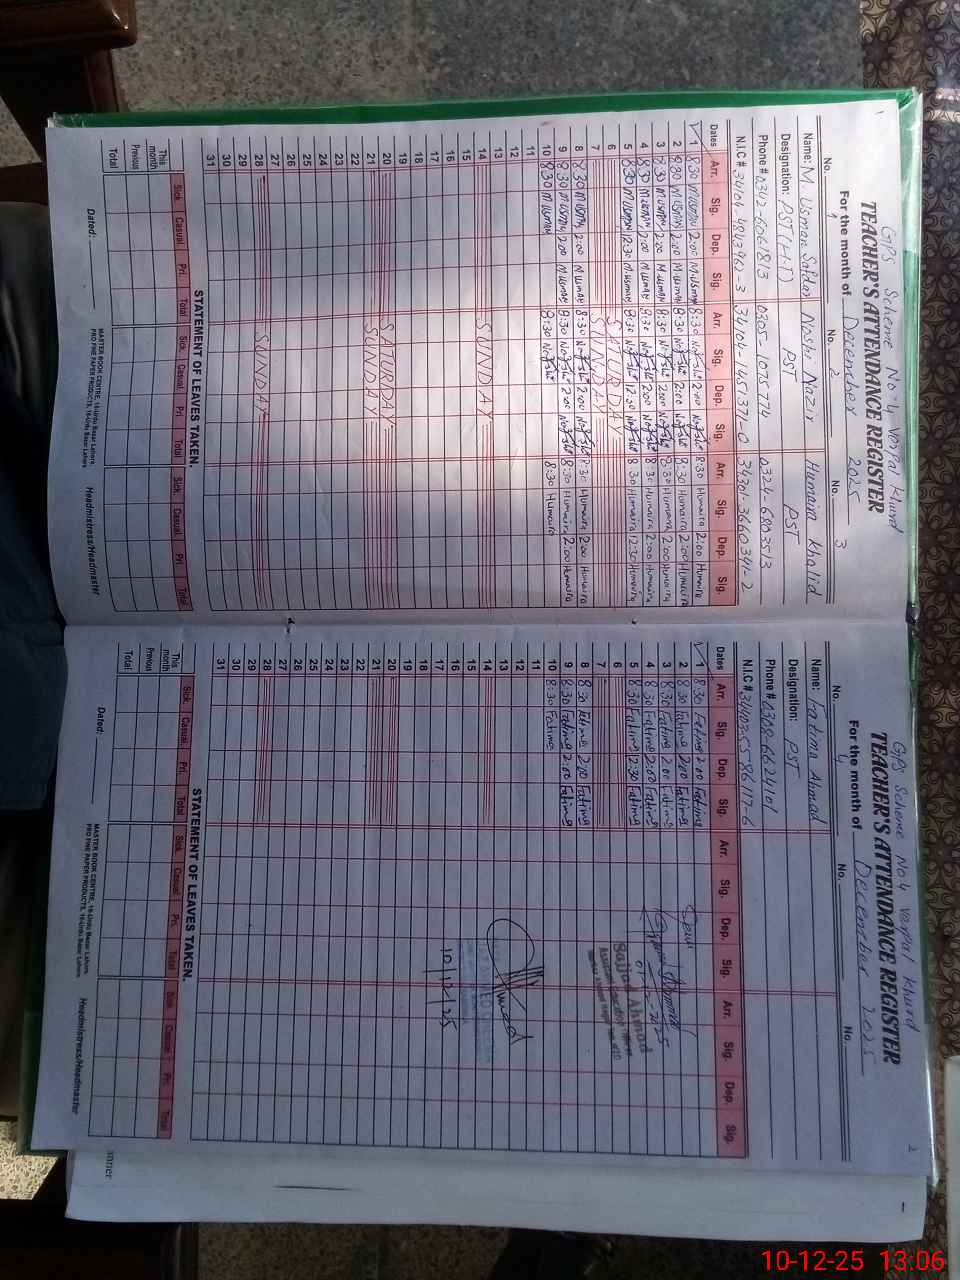 GPS Scheme No-4 Verpal Khurd
TEACHER'S ATTENDANCE REGISTER
For the month of December 2025
No. 1 No. 2 No. 3
Name: M. Usman Safdar Noshi Nazir Humaira Khalid
Designation: PST PST PST
Phone # 0342-6061813 0305-1075774 0324-6803513
N.I.C # 34104-4843942-3 34104-1451371-0 34301-3660341-2
Dates Arr. Sig. Dep. Sig. Arr. Sig. Dep. Sig. Arr. Sig. Dep. Sig.
1 8:30 M.Usman 2:00 M.Usman 8:30 2:00 8:30 Humaira 2:00 Humaira
2 8:30 M.Usman 2:00 M.Usman 8:30 2:00 8:30 Humaira 2:00 Humaira
3 8:30 M.Usman 2:00 M.Usman 8:30 2:00 8:30 Humaira 2:00 Humaira
4 8:30 M.Usman 2:00 M.Usman 8:30 2:00 8:30 Humaira 2:00 Humaira
5 8:30 M.Usman 12:30 M.Usman 8:30 12:30 8:30 Humaira 12:30 Humaira
6 SATURDAY
7 SUNDAY
8 8:30 M.Usman 2:00 M.Usman 8:30 2:00 8:30 Humaira 2:00 Humaira
9 8:30 M.Usman 2:00 M.Usman 8:30 2:00 8:30 Humaira 2:00 Humaira
10 8:30 M.Usman 8:30 8:30 Humaira
11
12
13
14 SUNDAY
15
16
17
18
19
20 SATURDAY
21 SUNDAY
22
23
24
25
26
27
28 SUNDAY
29
30
31
STATEMENT OF LEAVES TAKEN.
Sick Casual Pri. Total Sick Casual Pri. Total Sick Casual Pri. Total
This month
Previous
Total
MASTER BOOK CENTRE, 16-Urdu Bazar Lahore.
PRO FINE PAPER PRODUCTS, 16-Urdu Bazar Lahore.
Dated: Headmistress/Headmaster
GPS Scheme No 4 Verpal Khurd
TEACHER'S ATTENDANCE REGISTER
For the month of December 2025
No. 4 No. No.
Name: Fatima Ahmad
Designation: PST
Phone # 0308-6624101
N.I.C #
Dates Arr. Sig. Dep. Sig. Arr. Sig. Dep. Sig. Arr. Sig. Dep. Sig.
1 8:30 Fatima 2:00 Fatima
2 8:30 Fatima 2:00 Fatima
3 8:30 Fatima 2:00 Fatima
4 8:30 Fatima 2:00 Fatima
5 8:30 Fatima 12:30 Fatima
6
7
8 8:30 Fatima 2:00 Fatima
9 8:30 Fatima 2:00 Fatima
10 8:30 Fatima
11
12
13
14
15
16
17
18
19
20
21
22
23
24
25
26
27
28
29
30
31
Sajjad Ahmad
10/12/25
STATEMENT OF LEAVES TAKEN.
Sick Casual Pri. Total Sick Casual Pri. Total Sick Casual Pri. Total
This month
Previous
Total
MASTER BOOK CENTRE, 16-Urdu Bazar Lahore.
PRO FINE PAPER PRODUCTS, 16-Urdu Bazar Lahore.
Dated: Headmistress/Headmaster
10-12-25 13:06